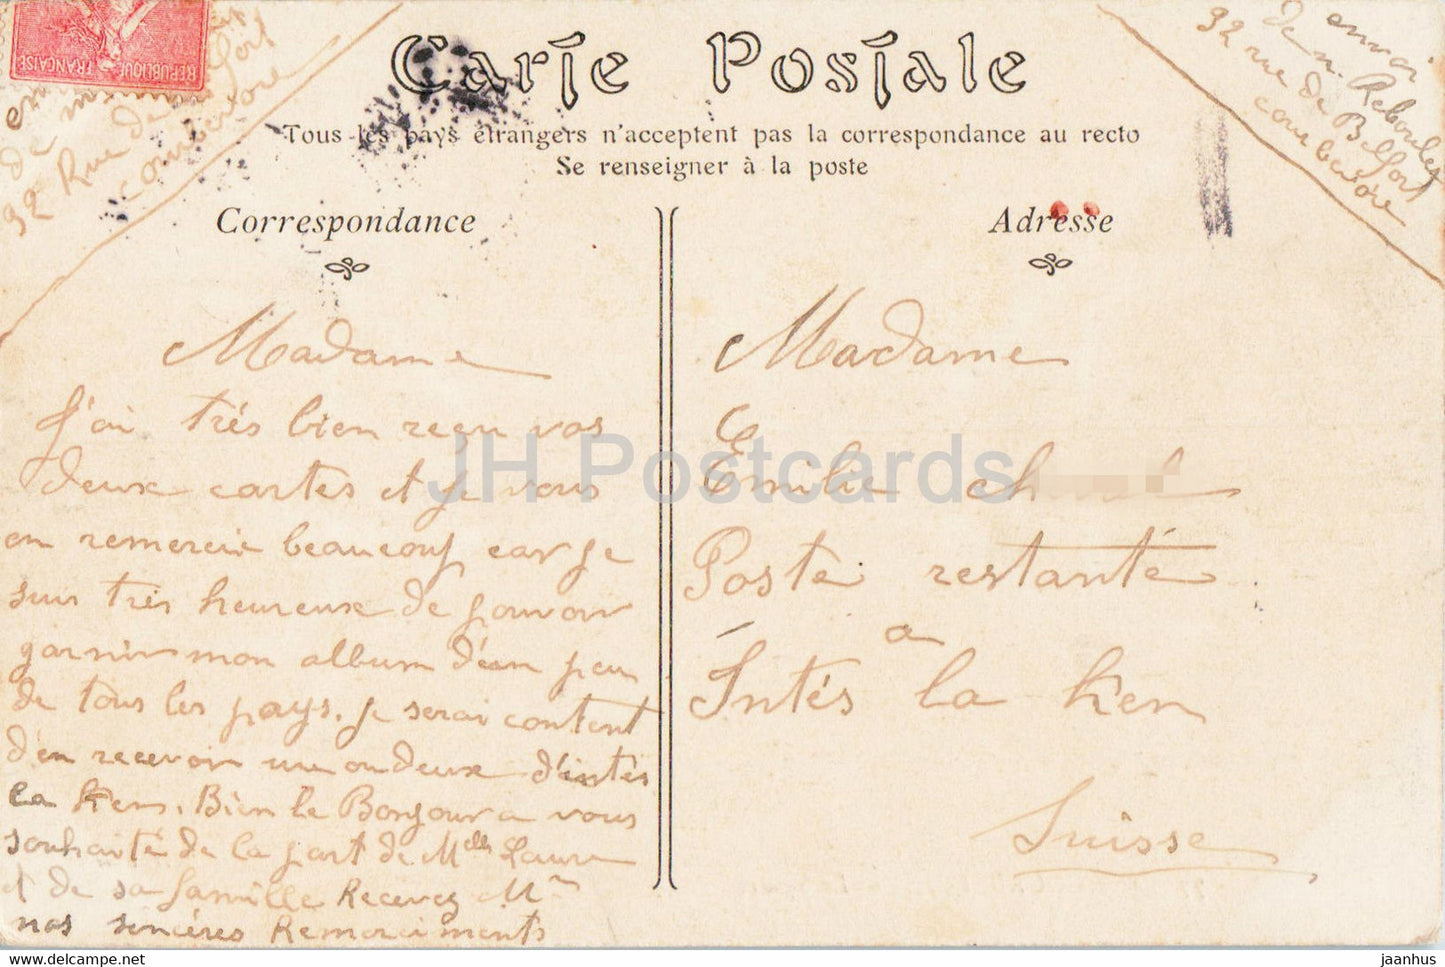 RÉPUBLIQUE FRANÇAISE
de
92 Rue de
courbevoie
Carte Postale
Tous les pays étrangers n'acceptent pas la correspondance au recto
Se renseigner à la poste
envoi
de m. Reboulet
92 rue de Belfort
courbevoie
Correspondance
Adresse
Madame
J'ai très bien reçu vos
deux cartes et je vous
en remercie beaucoup car je
suis très heureuse de pouvoir
garnir mon album d'un peu
de tous les pays. je serai content
d'en recevoir une ou deux d'intés
la Ken. Bien le Bonjour a vous
souhaité de la part de Melle Laure
et de sa famille Recevez Mm
nos sincéres Remerciments
Madame
Emilie
Poste restante
a
Intés la Ken
Suisse
JH Postcards
jaanhus